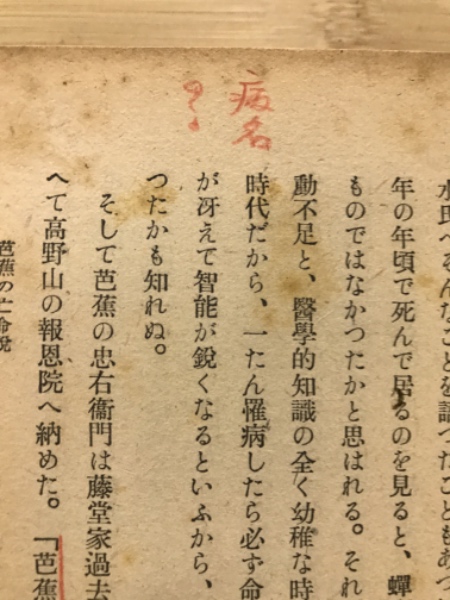 病名
の
年の年頃で死んで居るのを見ると、蟬
ものではなかつたかと思はれる。それ
動不足と、醫學的知識の全く幼稚な時
時代だから、一たん罹病したら必ず命
が冴えて智能が鋭くなるといふから、
つたかも知れぬ。
そして芭蕉の忠右衞門は藤堂家過去
へて高野山の報恩院へ納めた。「芭蕉
芭蕉の亡命說